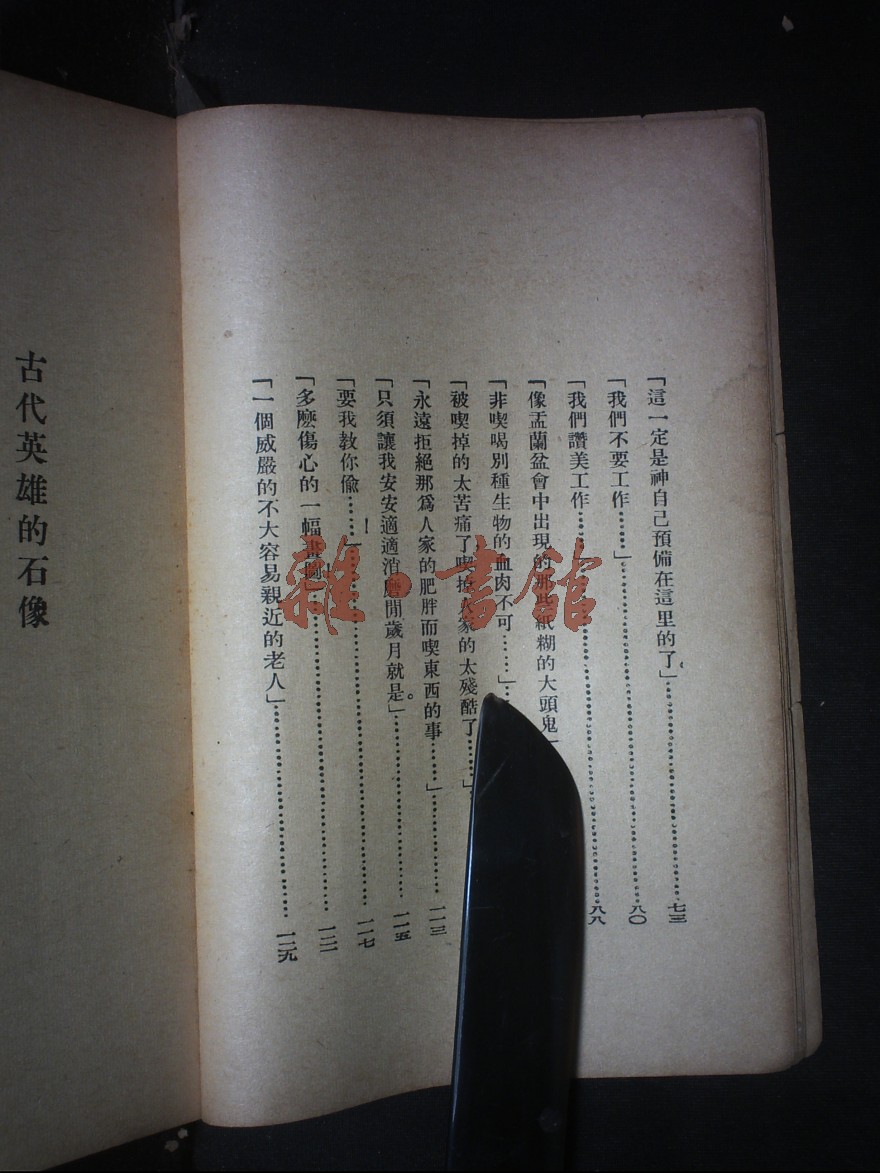 「這一定是神自己預備在這里的了。」……七三
「我們不要工作……」……八〇
「我們讚美工作……八八
「像盂蘭盆會中出現的那些紙糊的大頭鬼
「非喫喝別種生物的血肉不可……」
「被喫掉的太苦痛了喫掉人家的太殘酷了……」
「永遠拒絕那爲人家的肥胖而喫東西的事……」……一一三
「只須讓我安安適適消磨閒歲月就是。」……一一五
「要我教你偸……！」……一一七
「多麽傷心的一幅畫圖！」……一二一
「一個威嚴的不大容易親近的老人」……一二九
古代英雄的石像
雜·書館